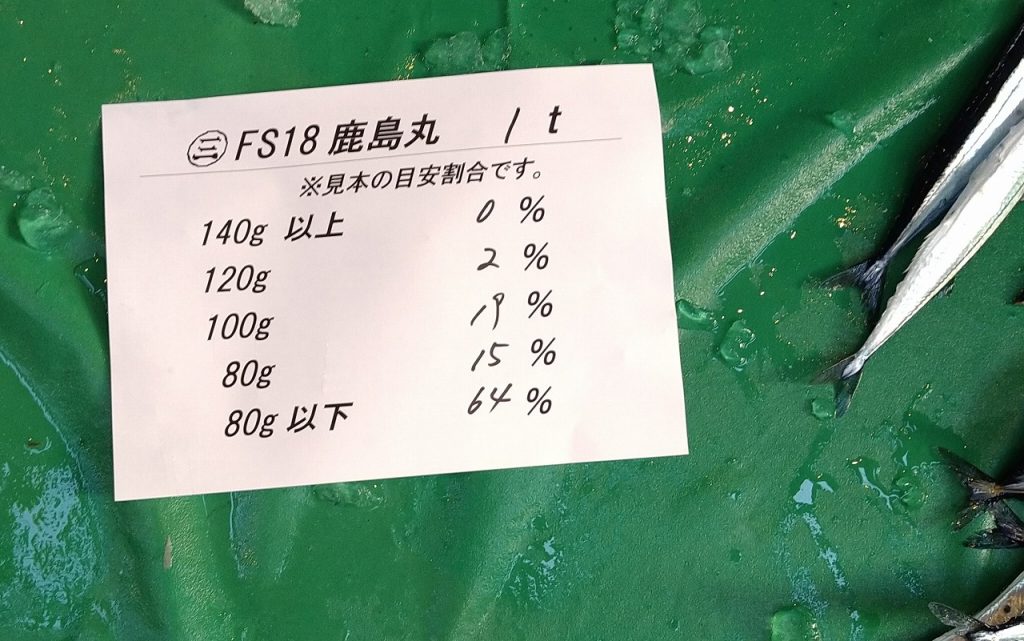 ㊂ FS18 鹿島丸 1 t
※見本の目安割合です。
140g 以上 0 %
120g 2 %
100g 19 %
80g 15 %
80g 以下 64 %